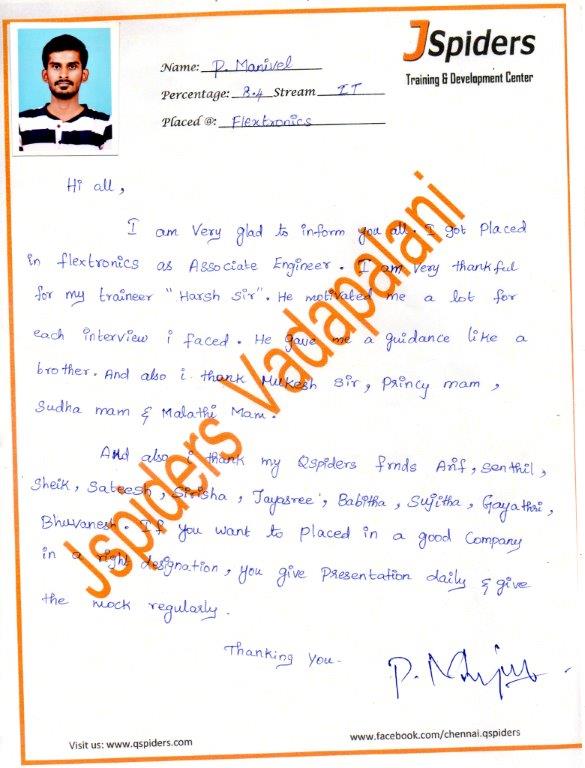 JSpiders
Training & Development Center
Name: P. Manivel
Percentage: 8.4 Stream IT
Placed @: Flextronics
Hi all,
I am very glad to inform you all. I got placed
in flextronics as Associate Engineer. I am very thankful
for my traineer "Harsh Sir". He motivated me a lot for
each interview i faced. He gave me a guidance like a
brother. And also i thank Mukesh Sir, Princy mam,
Sudha mam & Malathi Mam.
And also i thank my Qspiders frnds Arif, Senthil,
Sheik, Sateesh, Sirisha, Jayasree, Babitha, Sujitha, Gayathri,
Bhuvanesh. If you want to placed in a good Company
in a right designation, you give Presentation daily & give
the mock regularly.
Thanking you.
Jspiders Vadapalani
Visit us: www.qspiders.com
www.facebook.com/chennai.qspiders